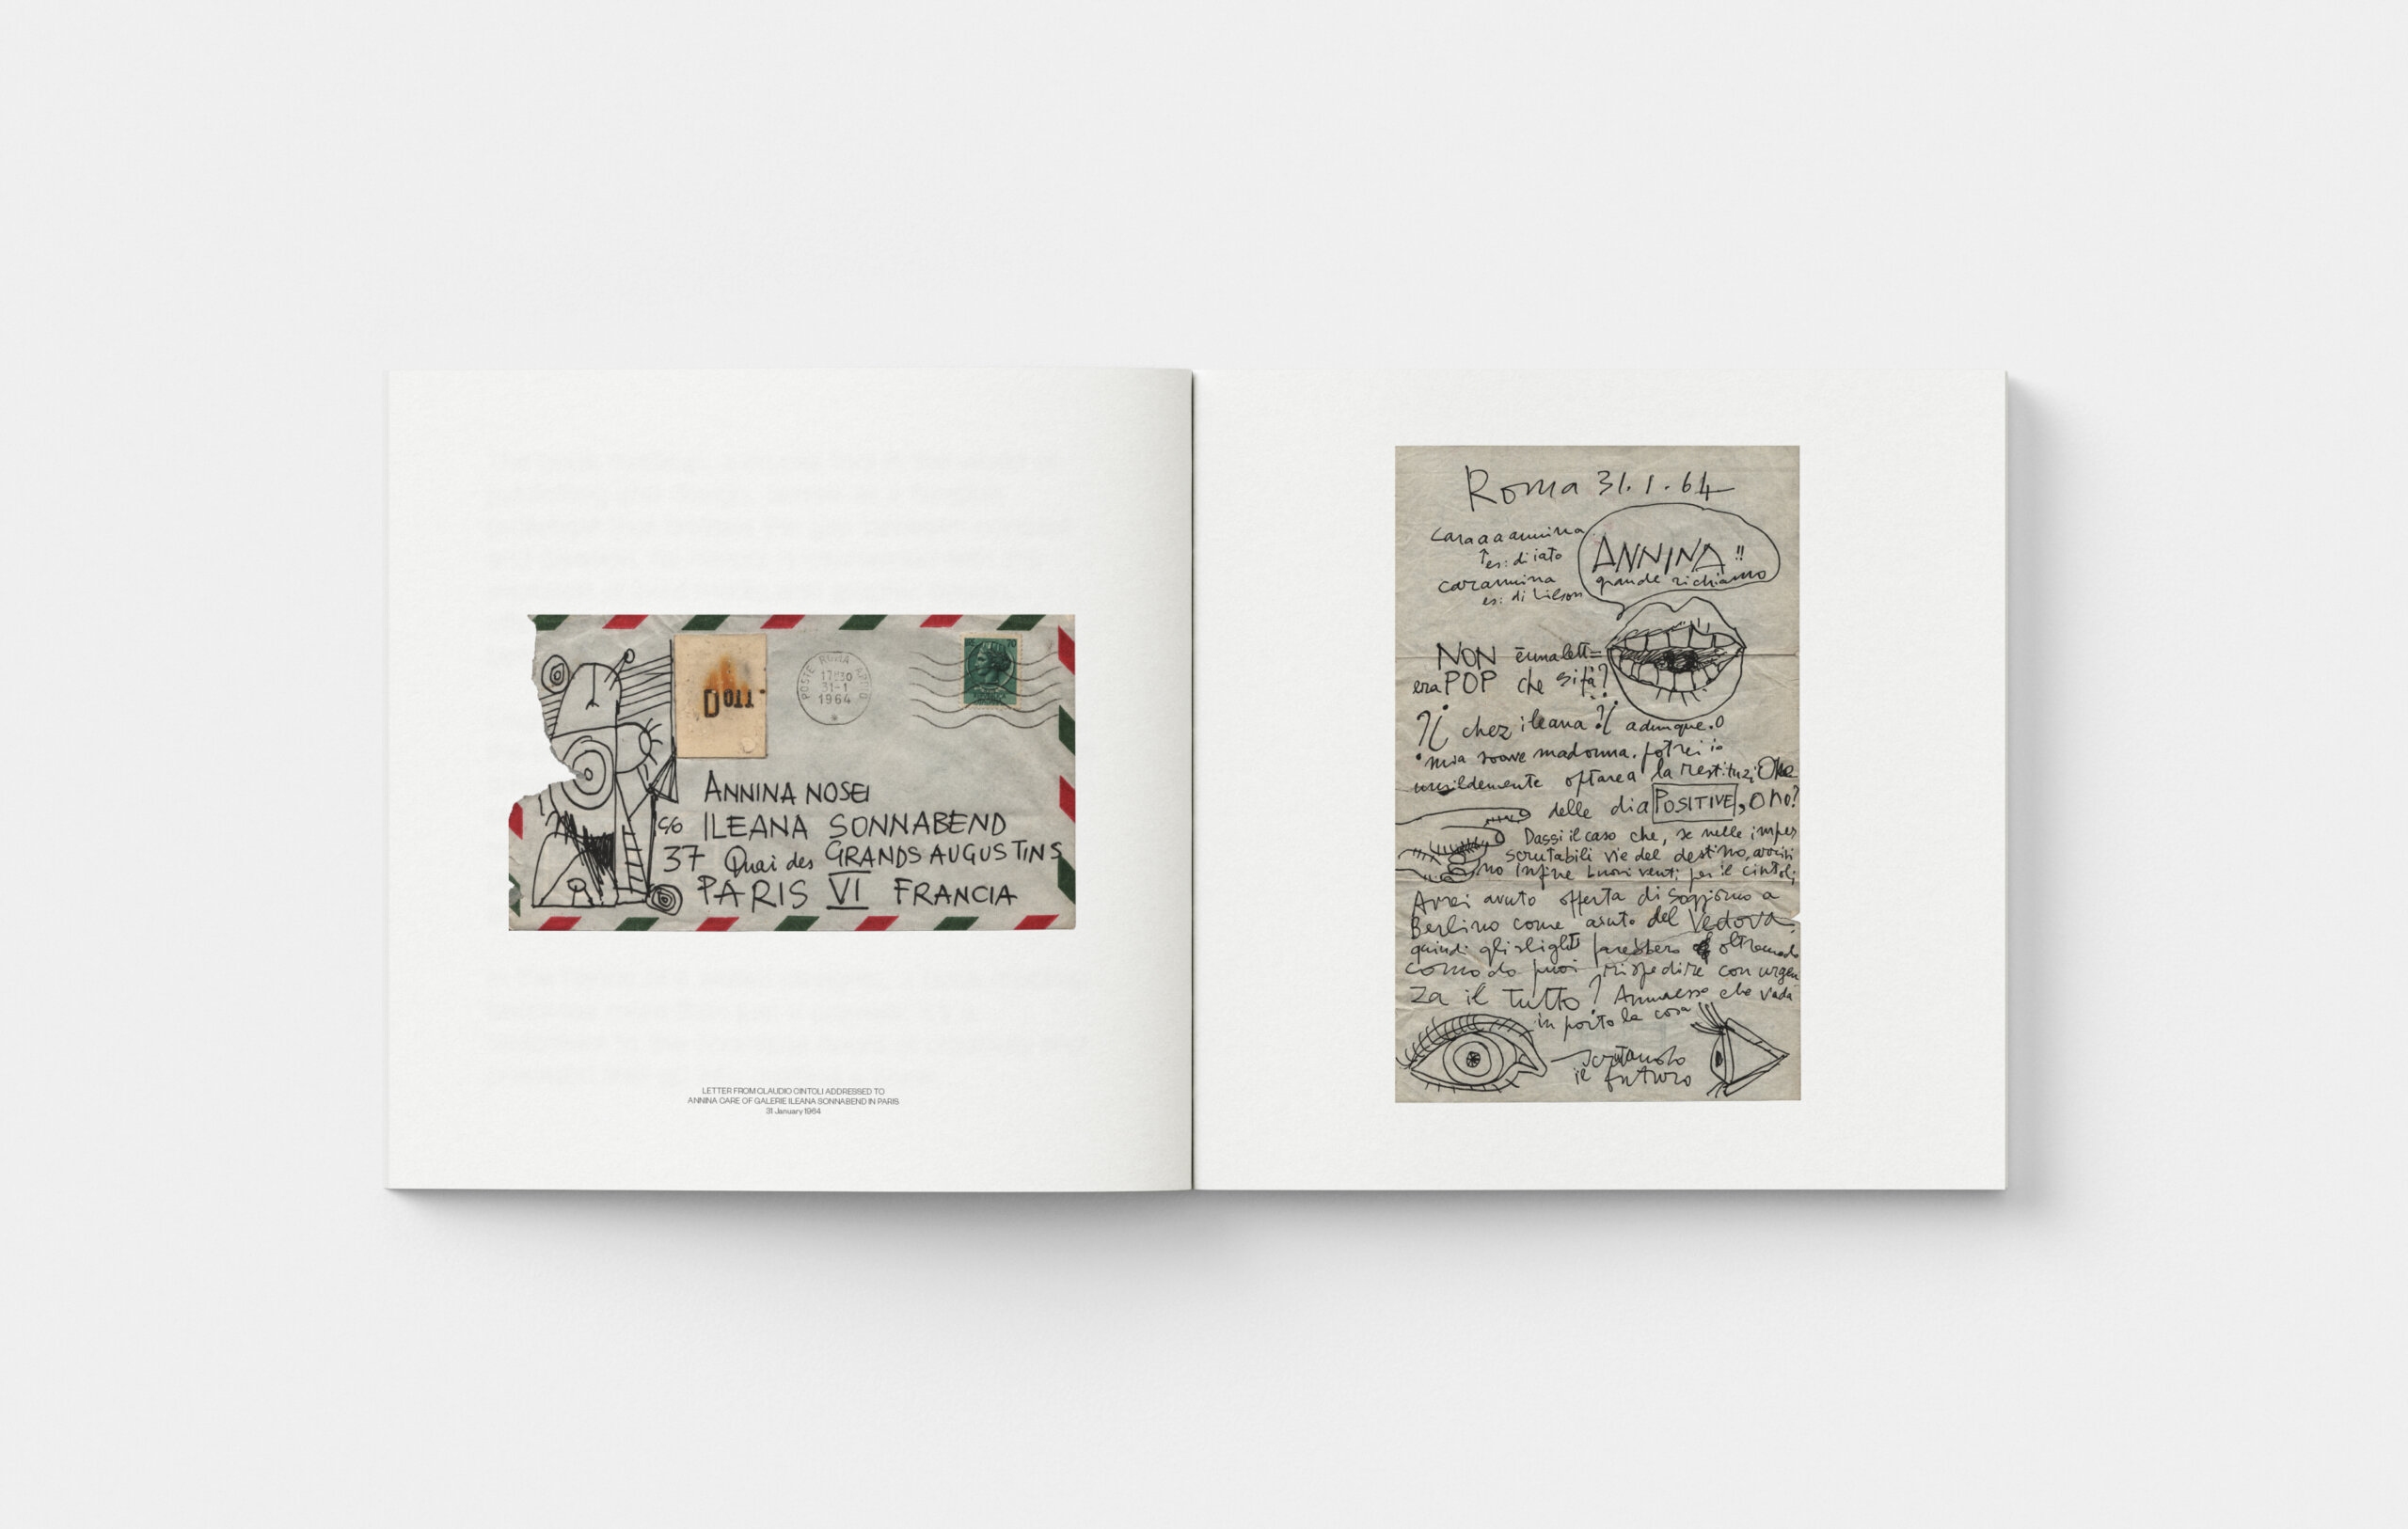 Dott.
POSTE ROMA
17:30
31-1
1964
70
ANNINA NOSEI
c/o ILEANA SONNABEND
37 Quai des GRANDS AUGUSTINS
PARIS VI FRANCIA
LETTER FROM CLAUDIO CINTOLI ADDRESSED TO
ANNINA CARE OF GALERIE ILEANA SONNABEND IN PARIS
31 January 1964
Roma 31.1.64
caraaa annina
es: di iato
ANNINA!!
grande richiamo
carannina
es:
NON è una lett=
era POP che si fà?
?¿ chez ileana ?¿ adunque. O
mia soave madonna. potrei io
umildemente optare a la restituziOne
delle dia POSITIVE, o no?
Dassi il caso che, se nelle imper
scrutabili vie del destino,
no infine buoni venti per il cintoli
Avrei avuto offerta di soggiorno a
Berlino come aiuto del Vedova
quindi gli slights sarebbero oltremodo
comodo puoi rispedire con urgen
za il tutto? Ammesso che vada
in porto la cosa
scrutando
il futuro